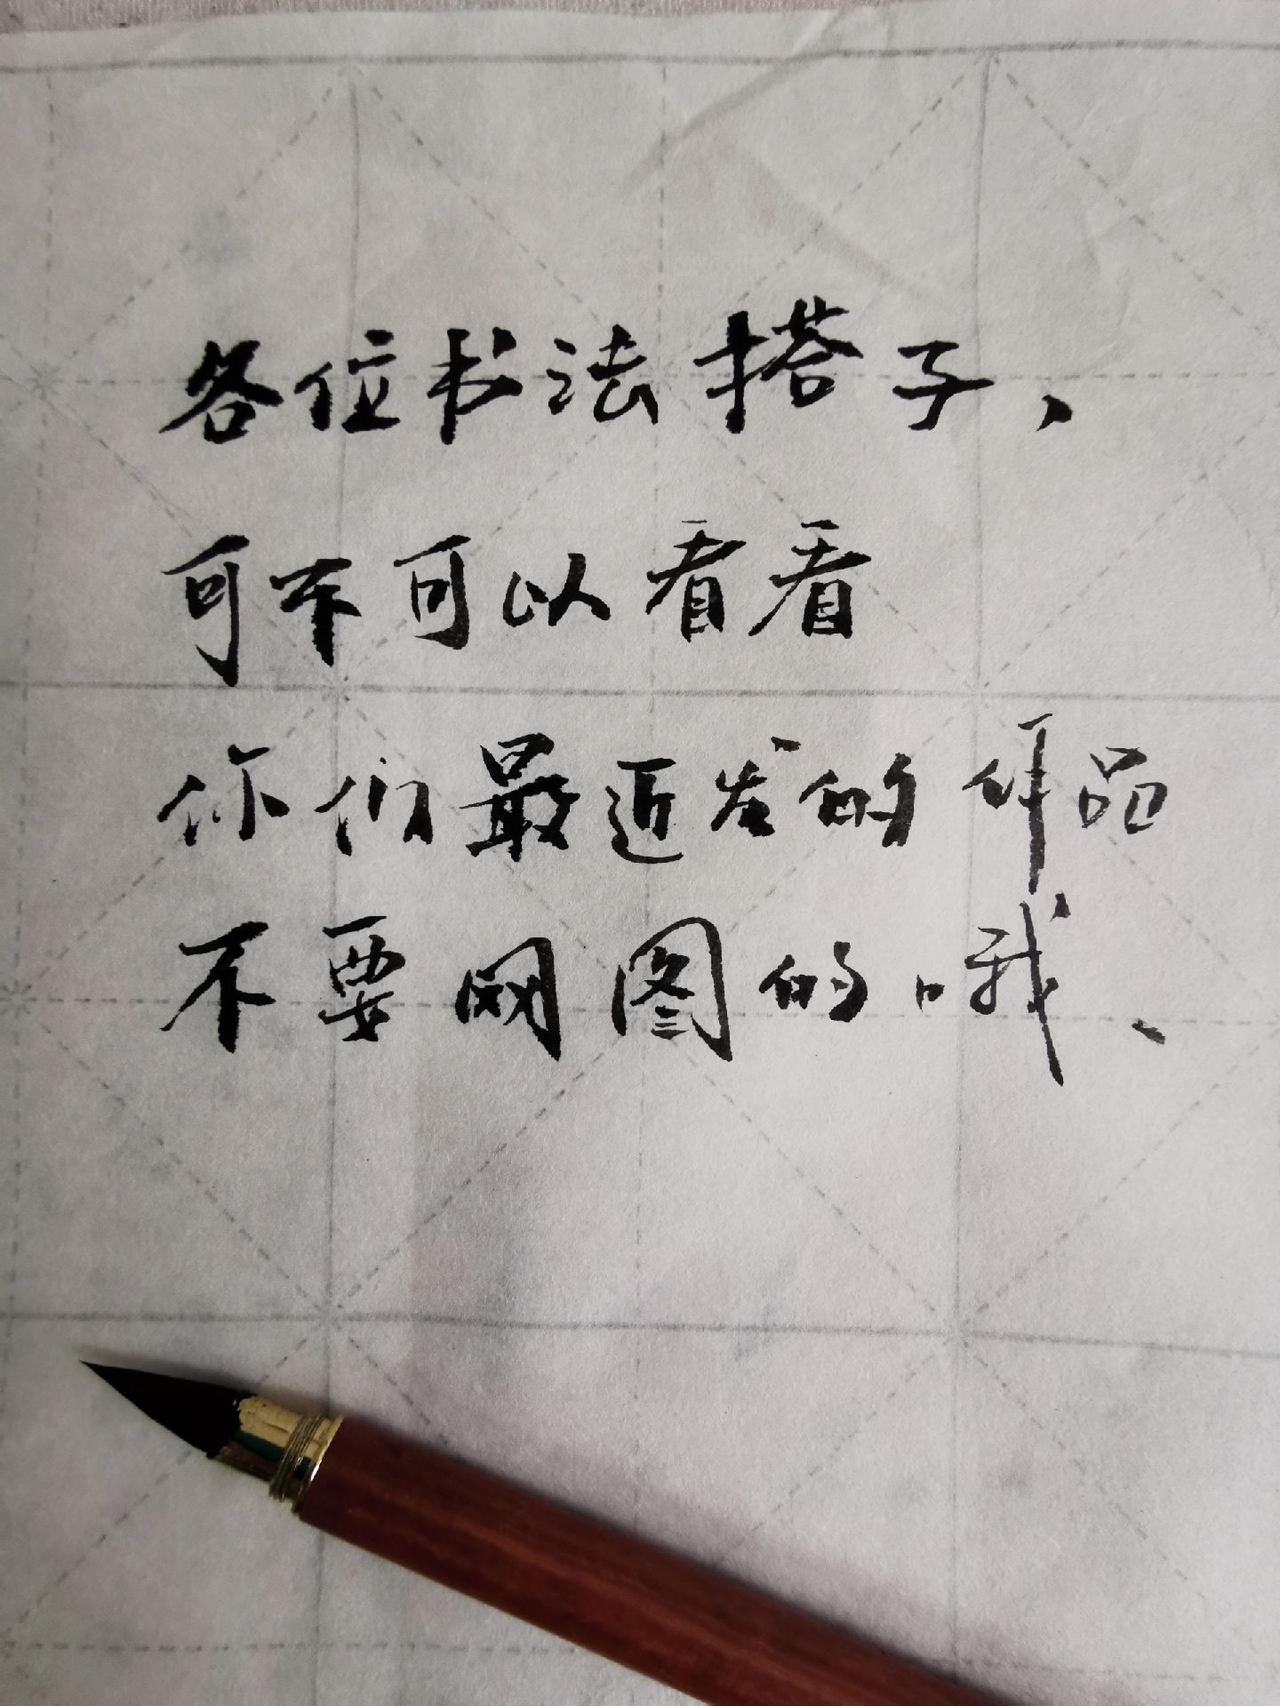 各位书法搭子、
可不可以看看
你们最近发的作品
不要网图的哦、